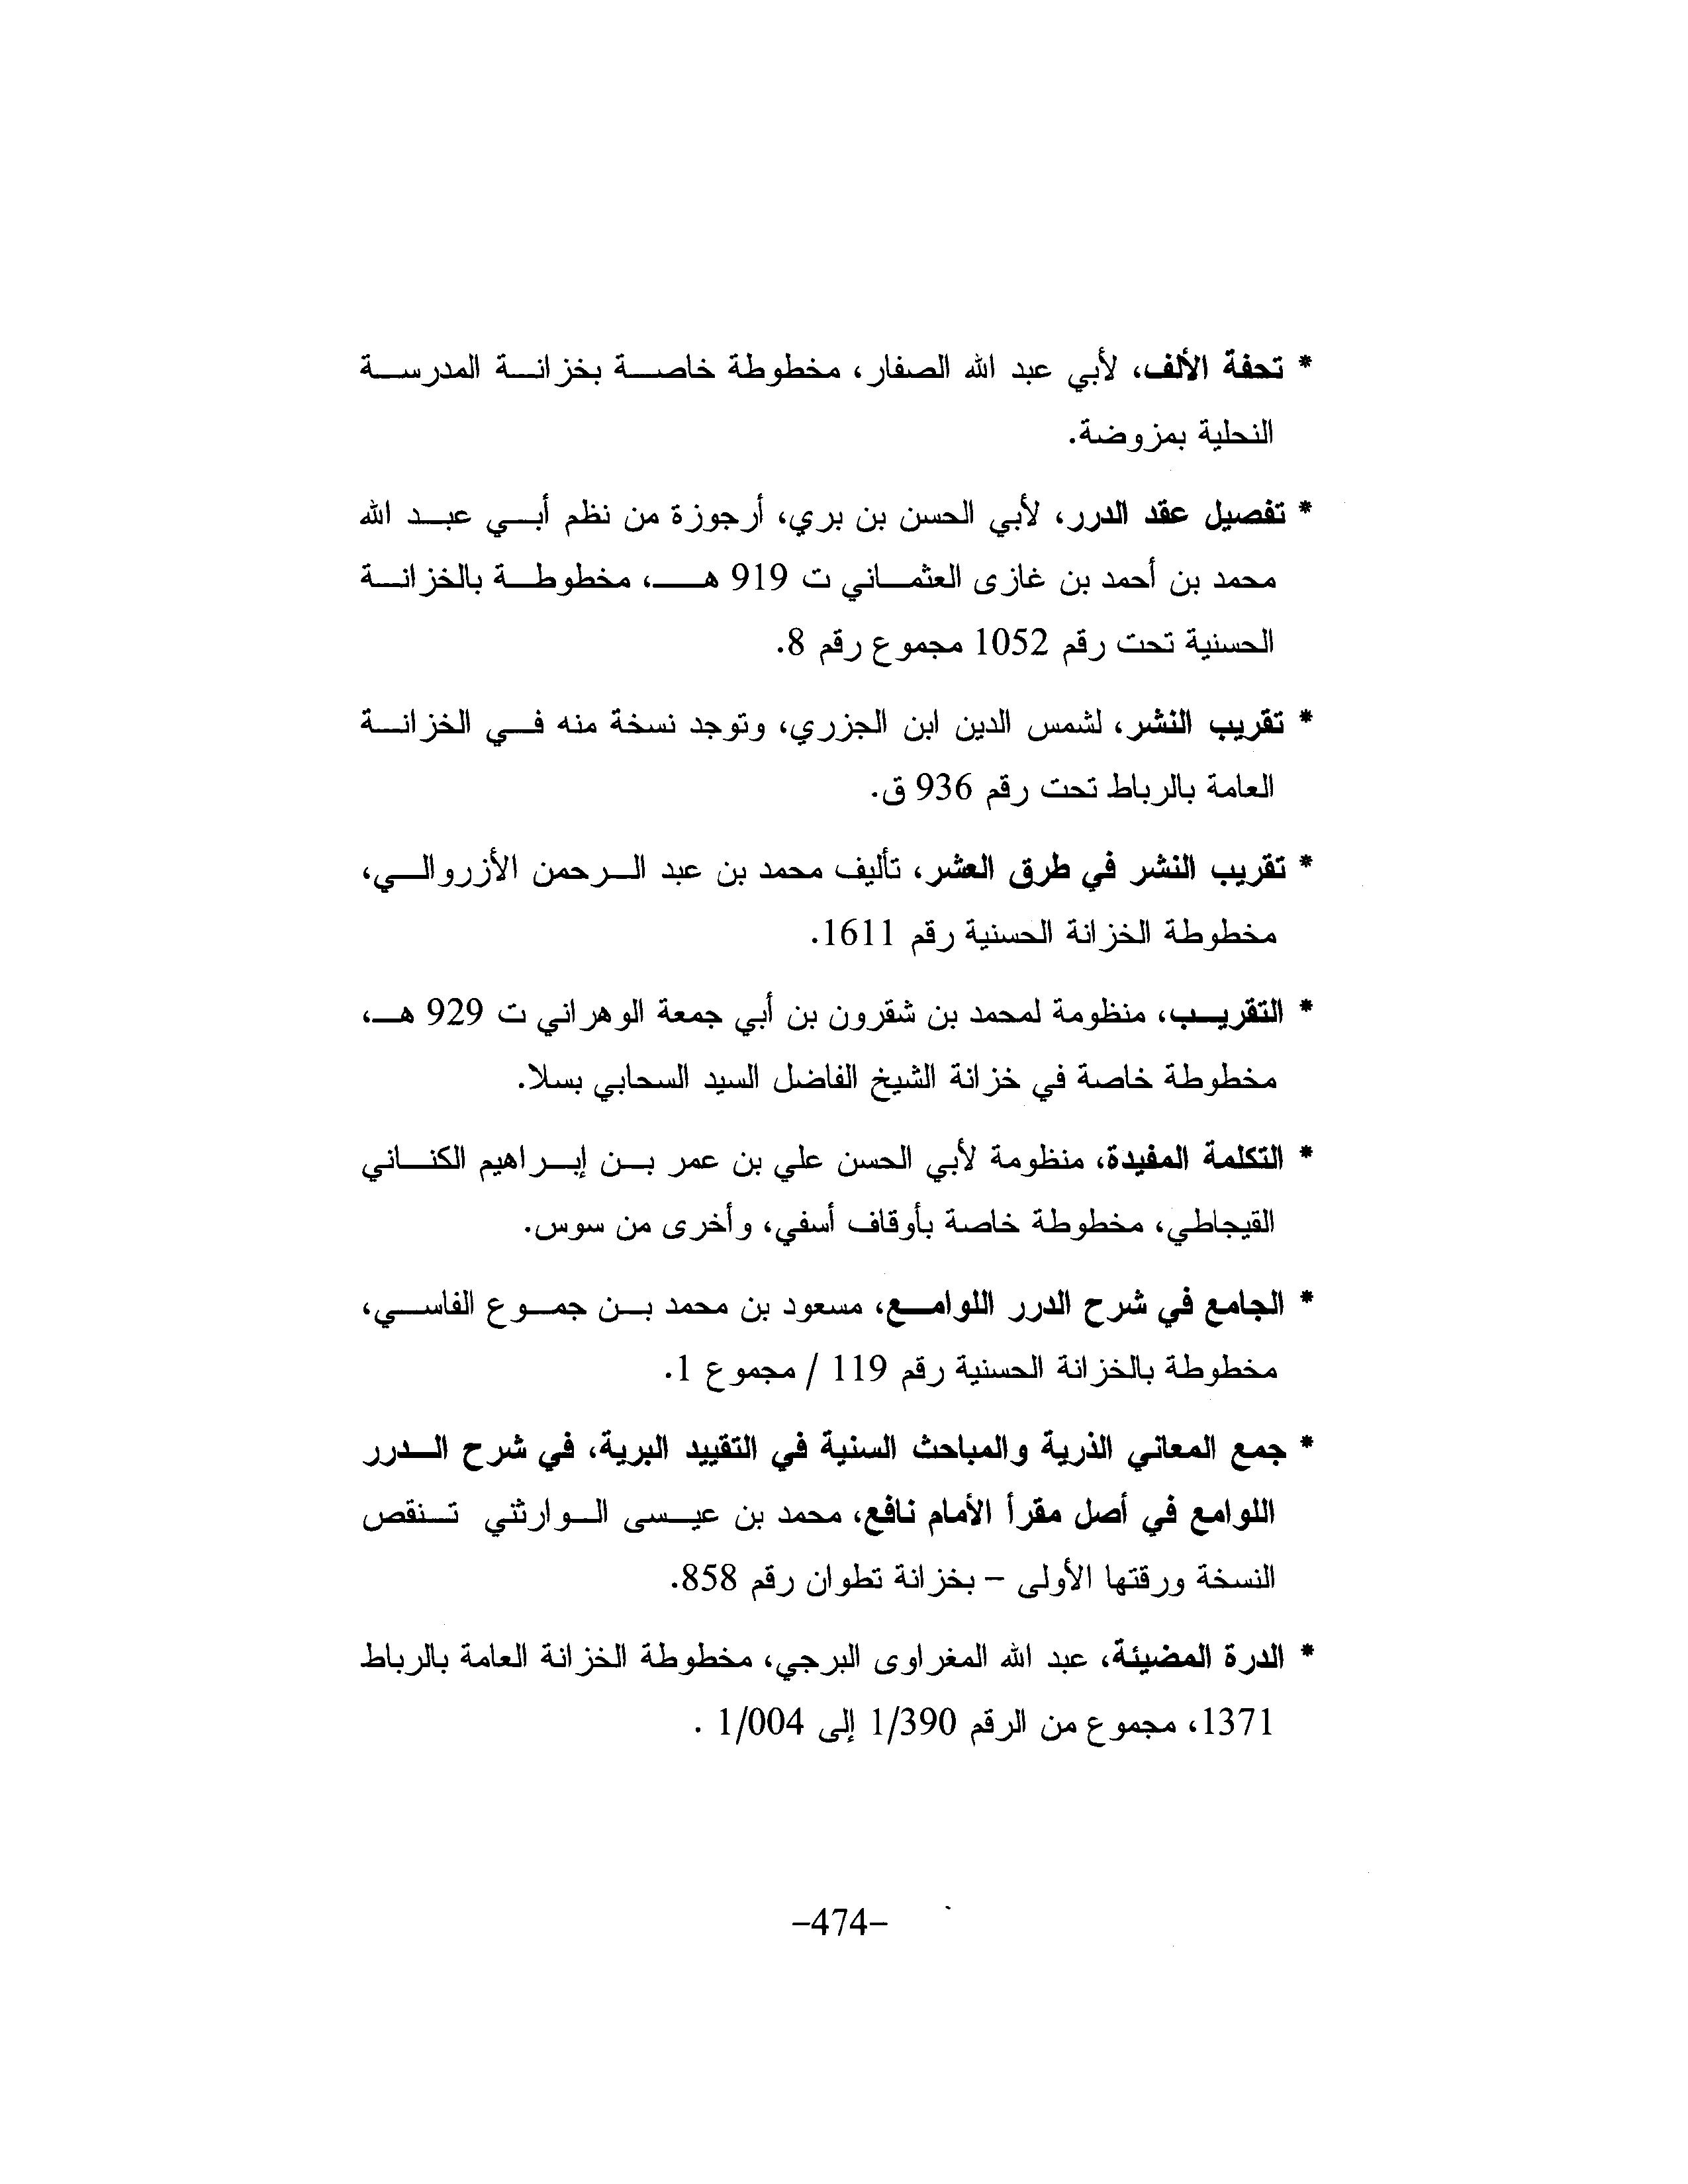 * تحفة الألف، لأبي عبد الله الصفار، مخطوطة خاصة بخزانة المدرسة
النحلية بمزوضة.
* تفصيل عقد الدرر، لأبي الحسن بن بري، أرجوزة من نظم أبي عبد الله
محمد بن أحمد بن غازى العثماني ت 919 هـ، مخطوطة بالخزانة
الحسنية تحت رقم 1052 مجموع رقم 8.
* تقريب النشر، لشمس الدين ابن الجزري، وتوجد نسخة منه في الخزانة
العامة بالرباط تحت رقم 936 ق.
* تقريب النشر في طرق العشر، تأليف محمد بن عبد الرحمن الأزروالي،
مخطوطة الخزانة الحسنية رقم 1611.
* التقريب، منظومة لمحمد بن شقرون بن أبي جمعة الوهراني ت 929 هـ،
مخطوطة خاصة في خزانة الشيخ الفاضل السيد السحابي بسلا.
* التكلمة المفيدة، منظومة لأبي الحسن علي بن عمر بن إبراهيم الكناني
القيجاطي، مخطوطة خاصة بأوقاف أسفي، وأخرى من سوس.
* الجامع في شرح الدرر اللوامع، مسعود بن محمد بن جموع الفاسي،
مخطوطة بالخزانة الحسنية رقم 119 / مجموع 1.
* جمع المعاني الذرية والمباحث السنية في التقييد البرية، في شرح الدرر
اللوامع في أصل مقرأ الأمام نافع، محمد بن عيسى الوارثني تنقص
النسخة ورقتها الأولى – بخزانة تطوان رقم 858.
* الدرة المضيئة، عبد الله المغراوى البرجي، مخطوطة الخزانة العامة بالرباط
1371، مجموع من الرقم 1/390 إلى 1/004 .
-474-